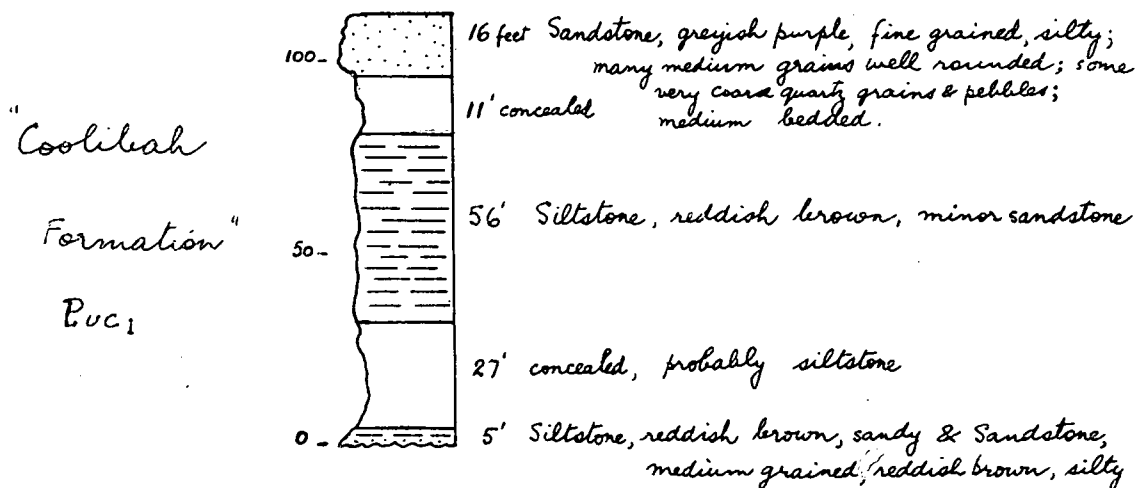 16 feet Sandstone, greyish purple, fine grained, silty;
many medium grains well rounded; some
very coarse quartz grains & pebbles;
medium bedded.
100-
11' concealed
"Coolibah
Formation"
56' Siltstone, reddish brown, minor sandstone
50-
27' concealed, probably siltstone
0-
5' Siltstone, reddish brown, sandy & Sandstone,
medium grained, reddish brown, silty